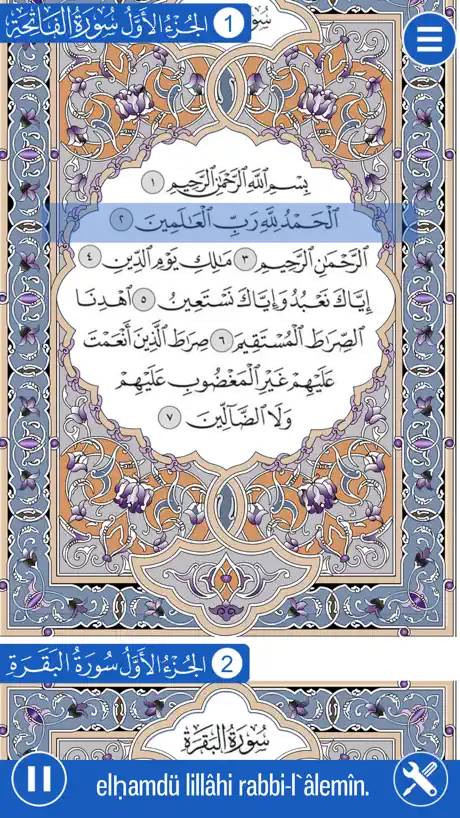 الجُزْءُ الأَوَّلُ سُورَةُ الفَاتِحَةِ 1
بِسْمِ ٱللَّهِ ٱلرَّحْمَٰنِ ٱلرَّحِيمِ ١
ٱلْحَمْدُ لِلَّهِ رَبِّ ٱلْعَٰلَمِينَ ٢
ٱلرَّحْمَٰنِ ٱلرَّحِيمِ ٣ مَٰلِكِ يَوْمِ ٱلدِّينِ ٤
إِيَّاكَ نَعْبُدُ وَإِيَّاكَ نَسْتَعِينُ ٥ ٱهْدِنَا
ٱلصِّرَٰطَ ٱلْمُسْتَقِيمَ ٦ صِرَٰطَ ٱلَّذِينَ أَنْعَمْتَ
عَلَيْهِمْ غَيْرِ ٱلْمَغْضُوبِ عَلَيْهِمْ
وَلَا ٱلضَّآلِّينَ ٧
الجُزْءُ الأَوَّلُ سُورَةُ البَقَرَةِ 2
سُورَةُ البَقَرَةِ
elḥamdü lillâhi rabbi-l`âlemîn.